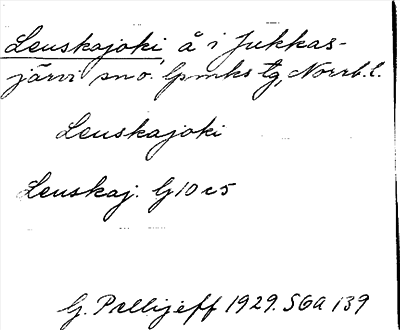 Leuskajoki, å i Jukkas-
järvi sno. lpmks tg, Norrb. l.
Leuskajoki
Leuskaj. G10c5
G. Pellijeff 1929. SOA 139